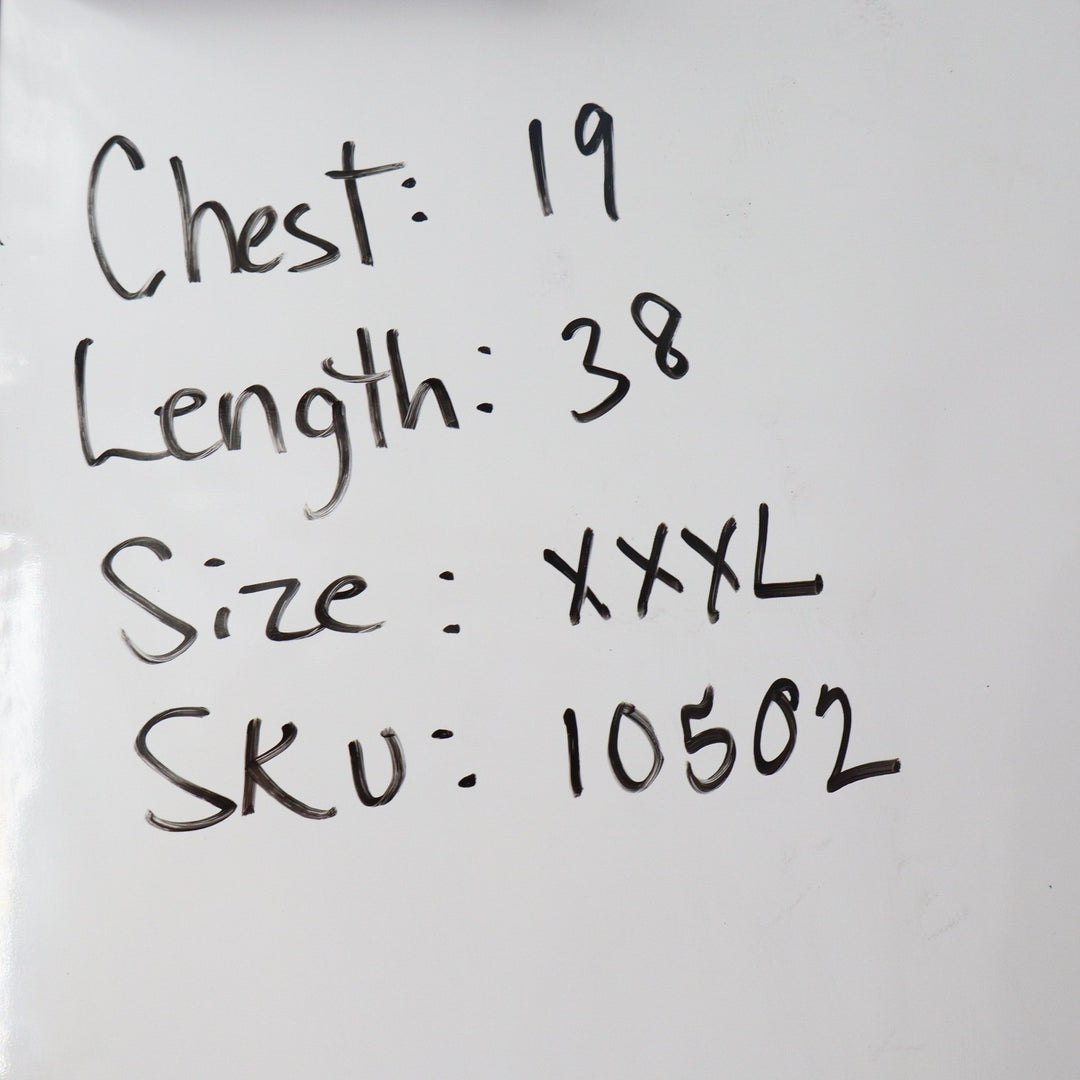 Chest: 19
Length: 38
Size: XXXL
SKU: 10502